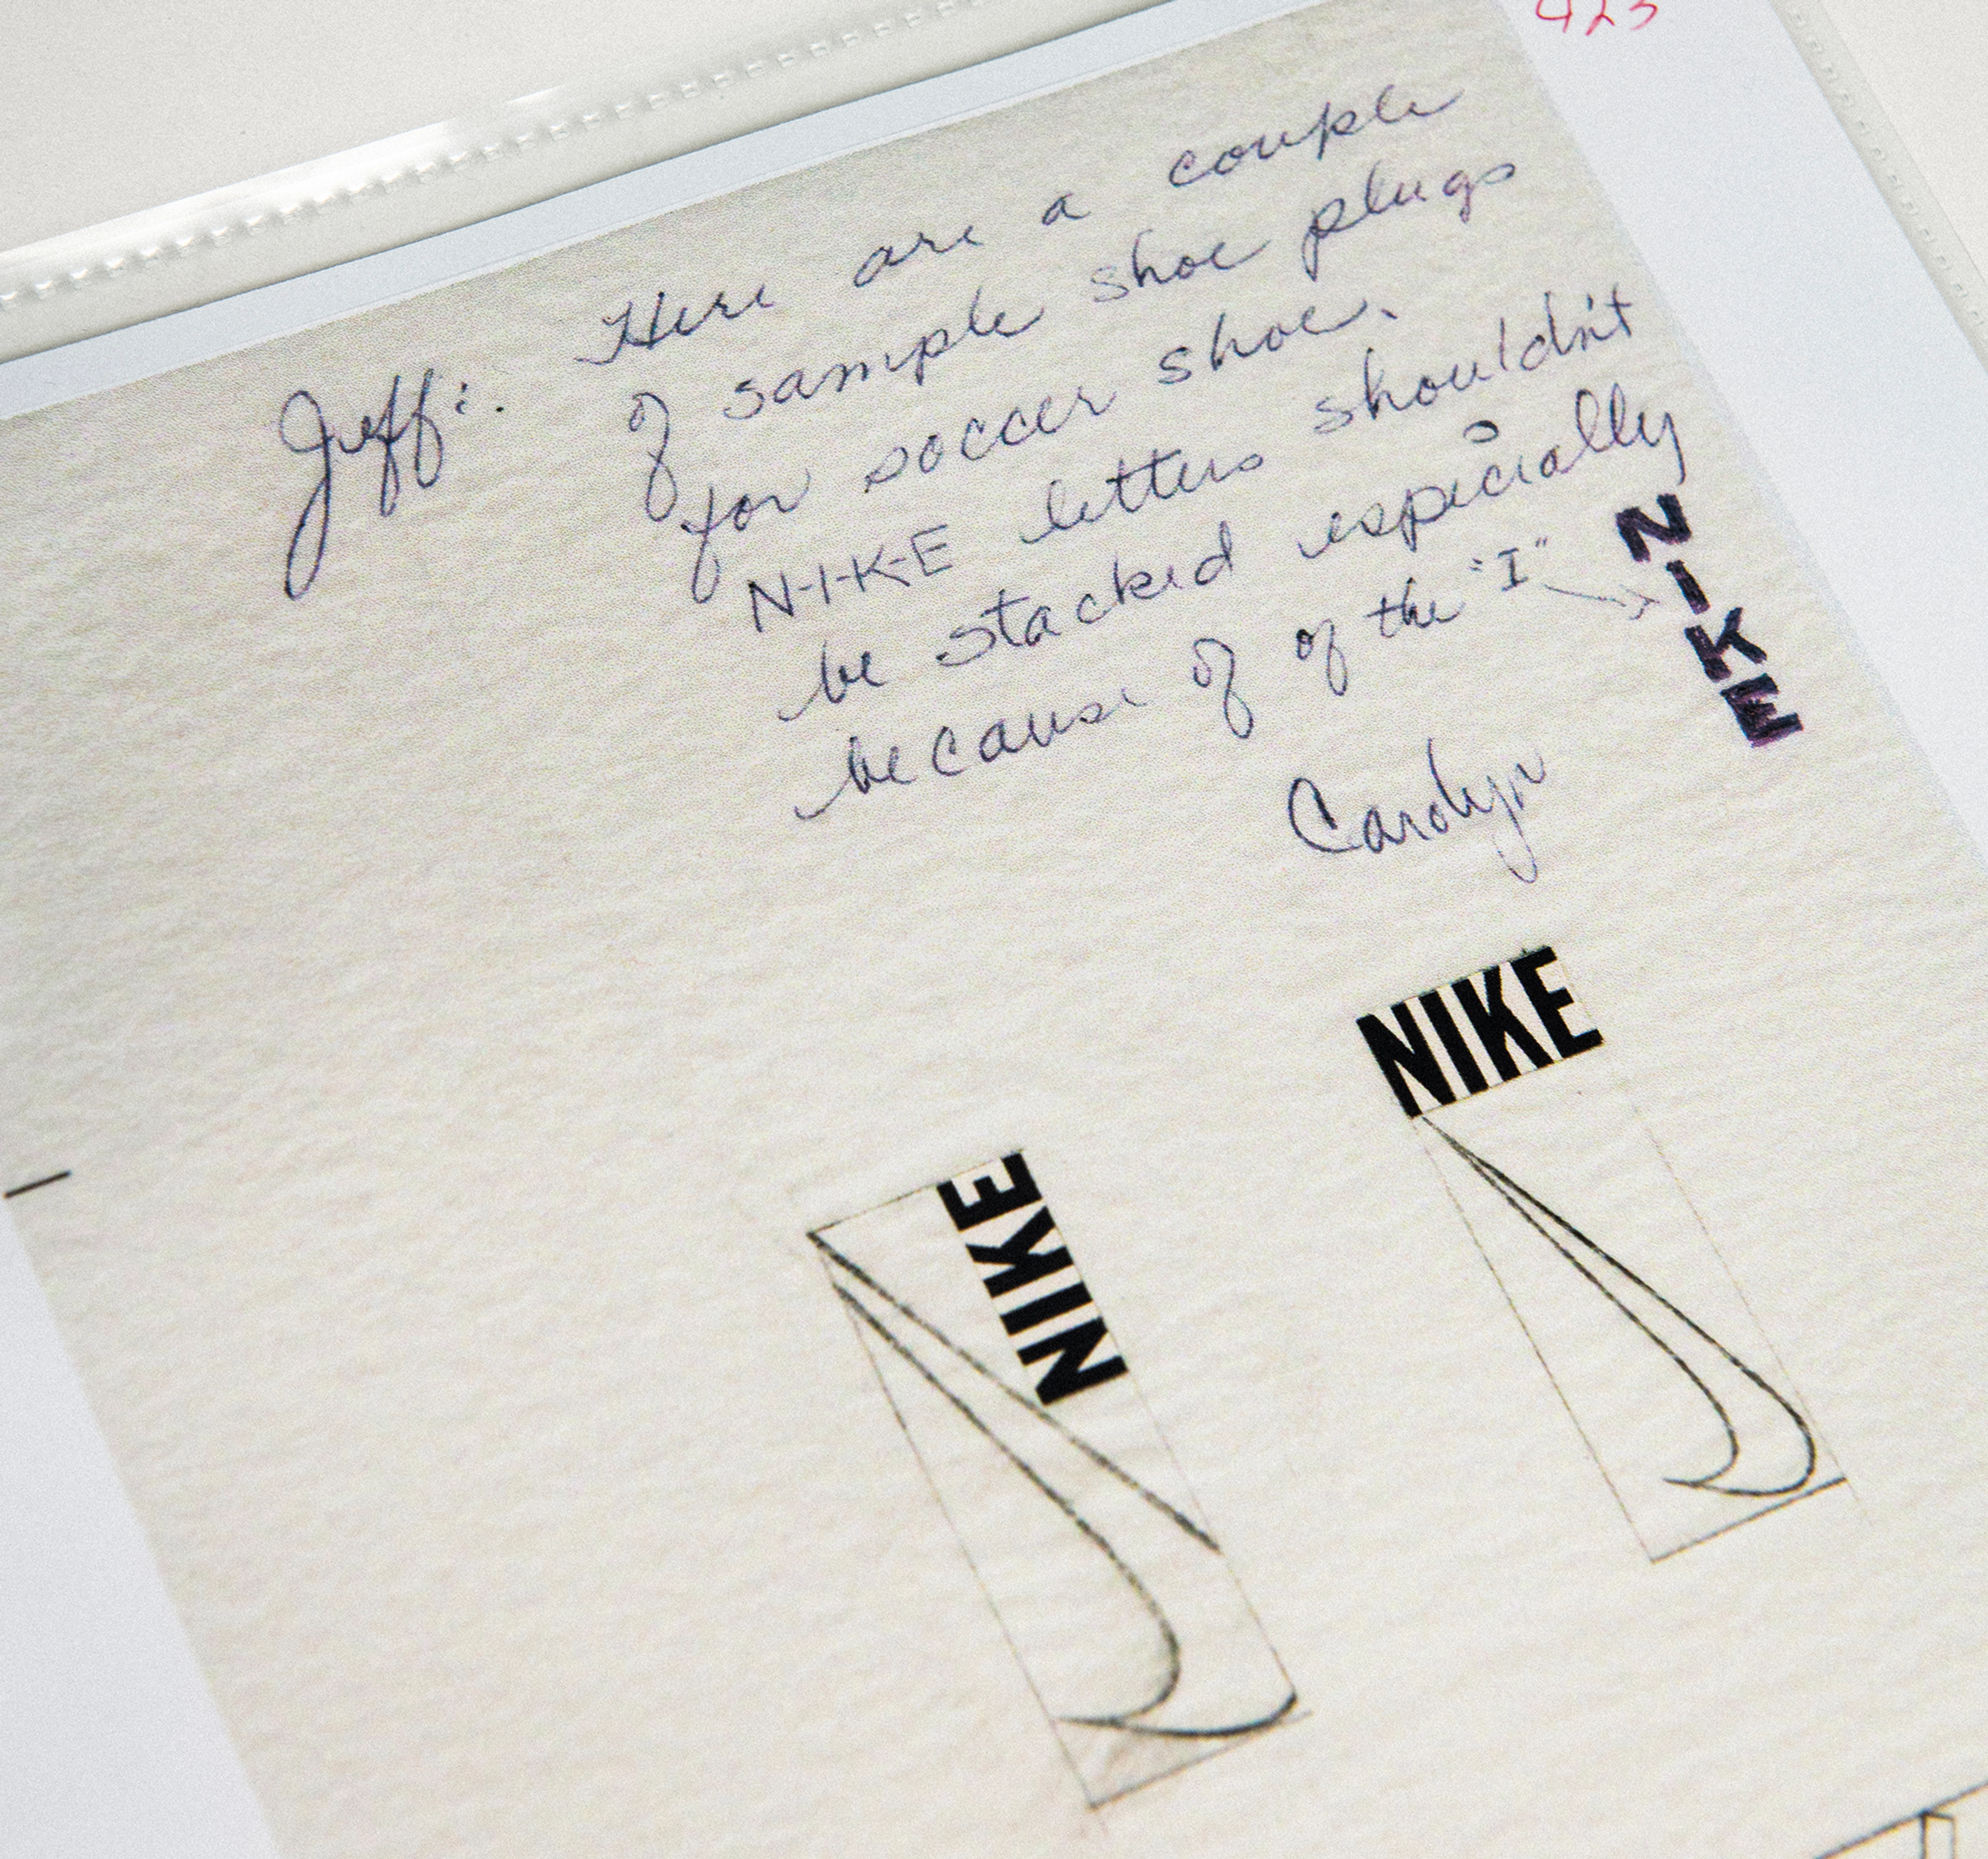 923
Jeff: Here are a couple
of sample shoe plugs
for soccer shoe.
N-I-K-E letters shouldn't
be stacked especially
because of of the "I"
N
I
K
E
Carolyn
NIKE
NIKE